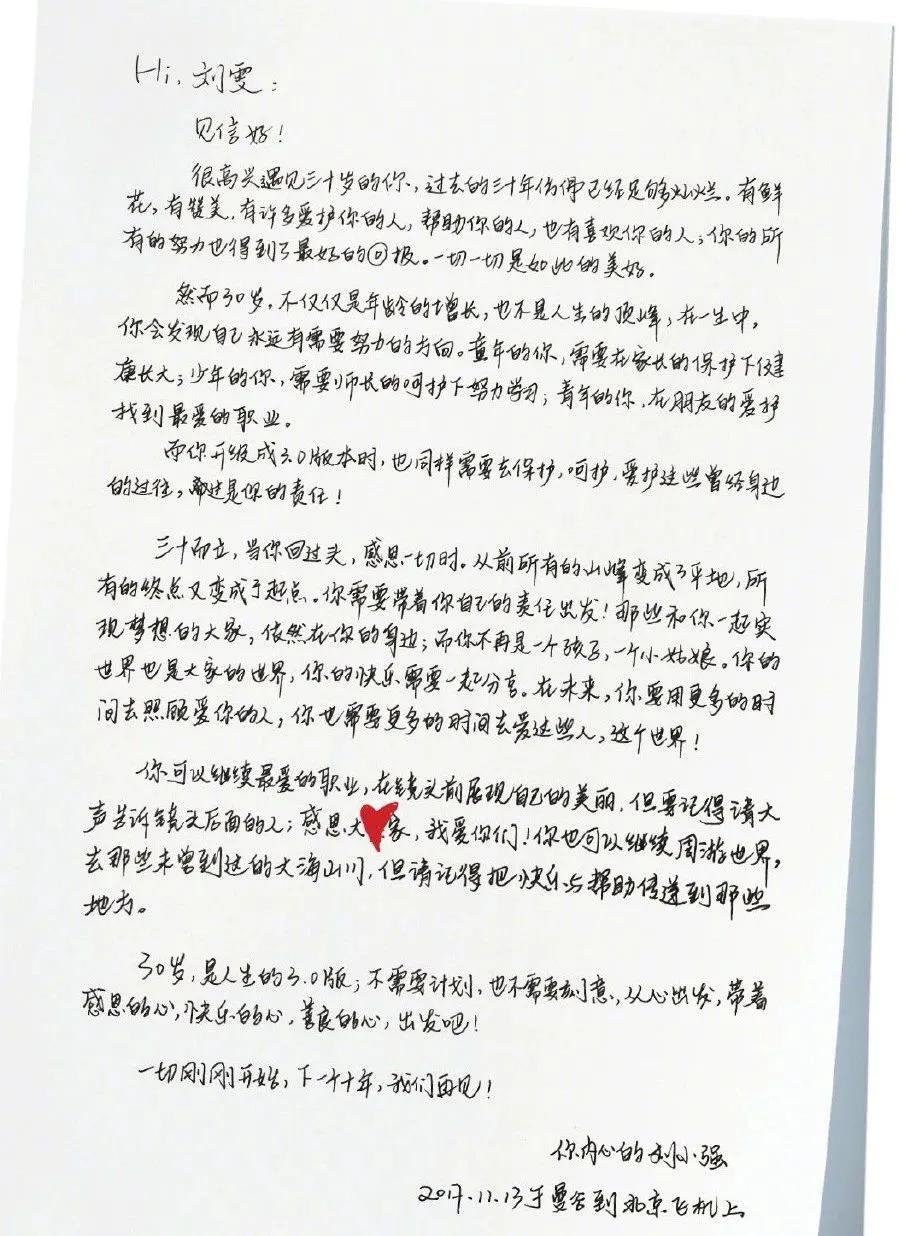 Hi, 刘雯：
见信好！
很高兴遇见三十岁的你，过去的三十年仿佛已经足够灿烂。有鲜
花，有赞美，有许多爱护你的人，帮助你的人，也有喜欢你的人；你的所
有的努力也得到了最好的回报。一切一切是如此的美好。
然而30岁，不仅仅是年龄的增长，也不是人生的顶峰，在一生中，
你会发现自己永远有需要努力的方向。童年的你，需要在家长的保护下健
康长大；少年的你，需要师长的呵护下努力学习；青年的你，在朋友的爱护
找到最爱的职业。
而你升级成3.0版本时，也同样需要去保护，呵护，爱护这些曾经身边
的过往，这是你的责任！
三十而立，当你回过头，感恩一切时。从前所有的山峰变成了平地，所
有的终点又变成了起点。你需要带着你自己的责任出发！那些和你一起实
现梦想的大家，依然在你的身边；而你不再是一个孩子，一个小姑娘。你的
世界也是大家的世界，你的快乐需要一起分享。在未来，你要用更多的时
间去照顾爱你的人，你也需要更多的时间去爱这些人，这个世界！
你可以继续最爱的职业，在镜头前展现自己的美丽，但要记得请大
声告诉镜头后面的人；感恩大家，我爱你们！你也可以继续周游世界，
去那些未曾到达的大海山川，但请记得把快乐与帮助传递到那些
地方。
30岁，是人生的3.0版；不需要计划，也不需要刻意，从心出发，带着
感恩的心，快乐的心，善良的心，出发吧！
一切刚刚开始，下一个十年，我们再见！
你内心的刘小强
2017.11.13于曼谷到北京飞机上